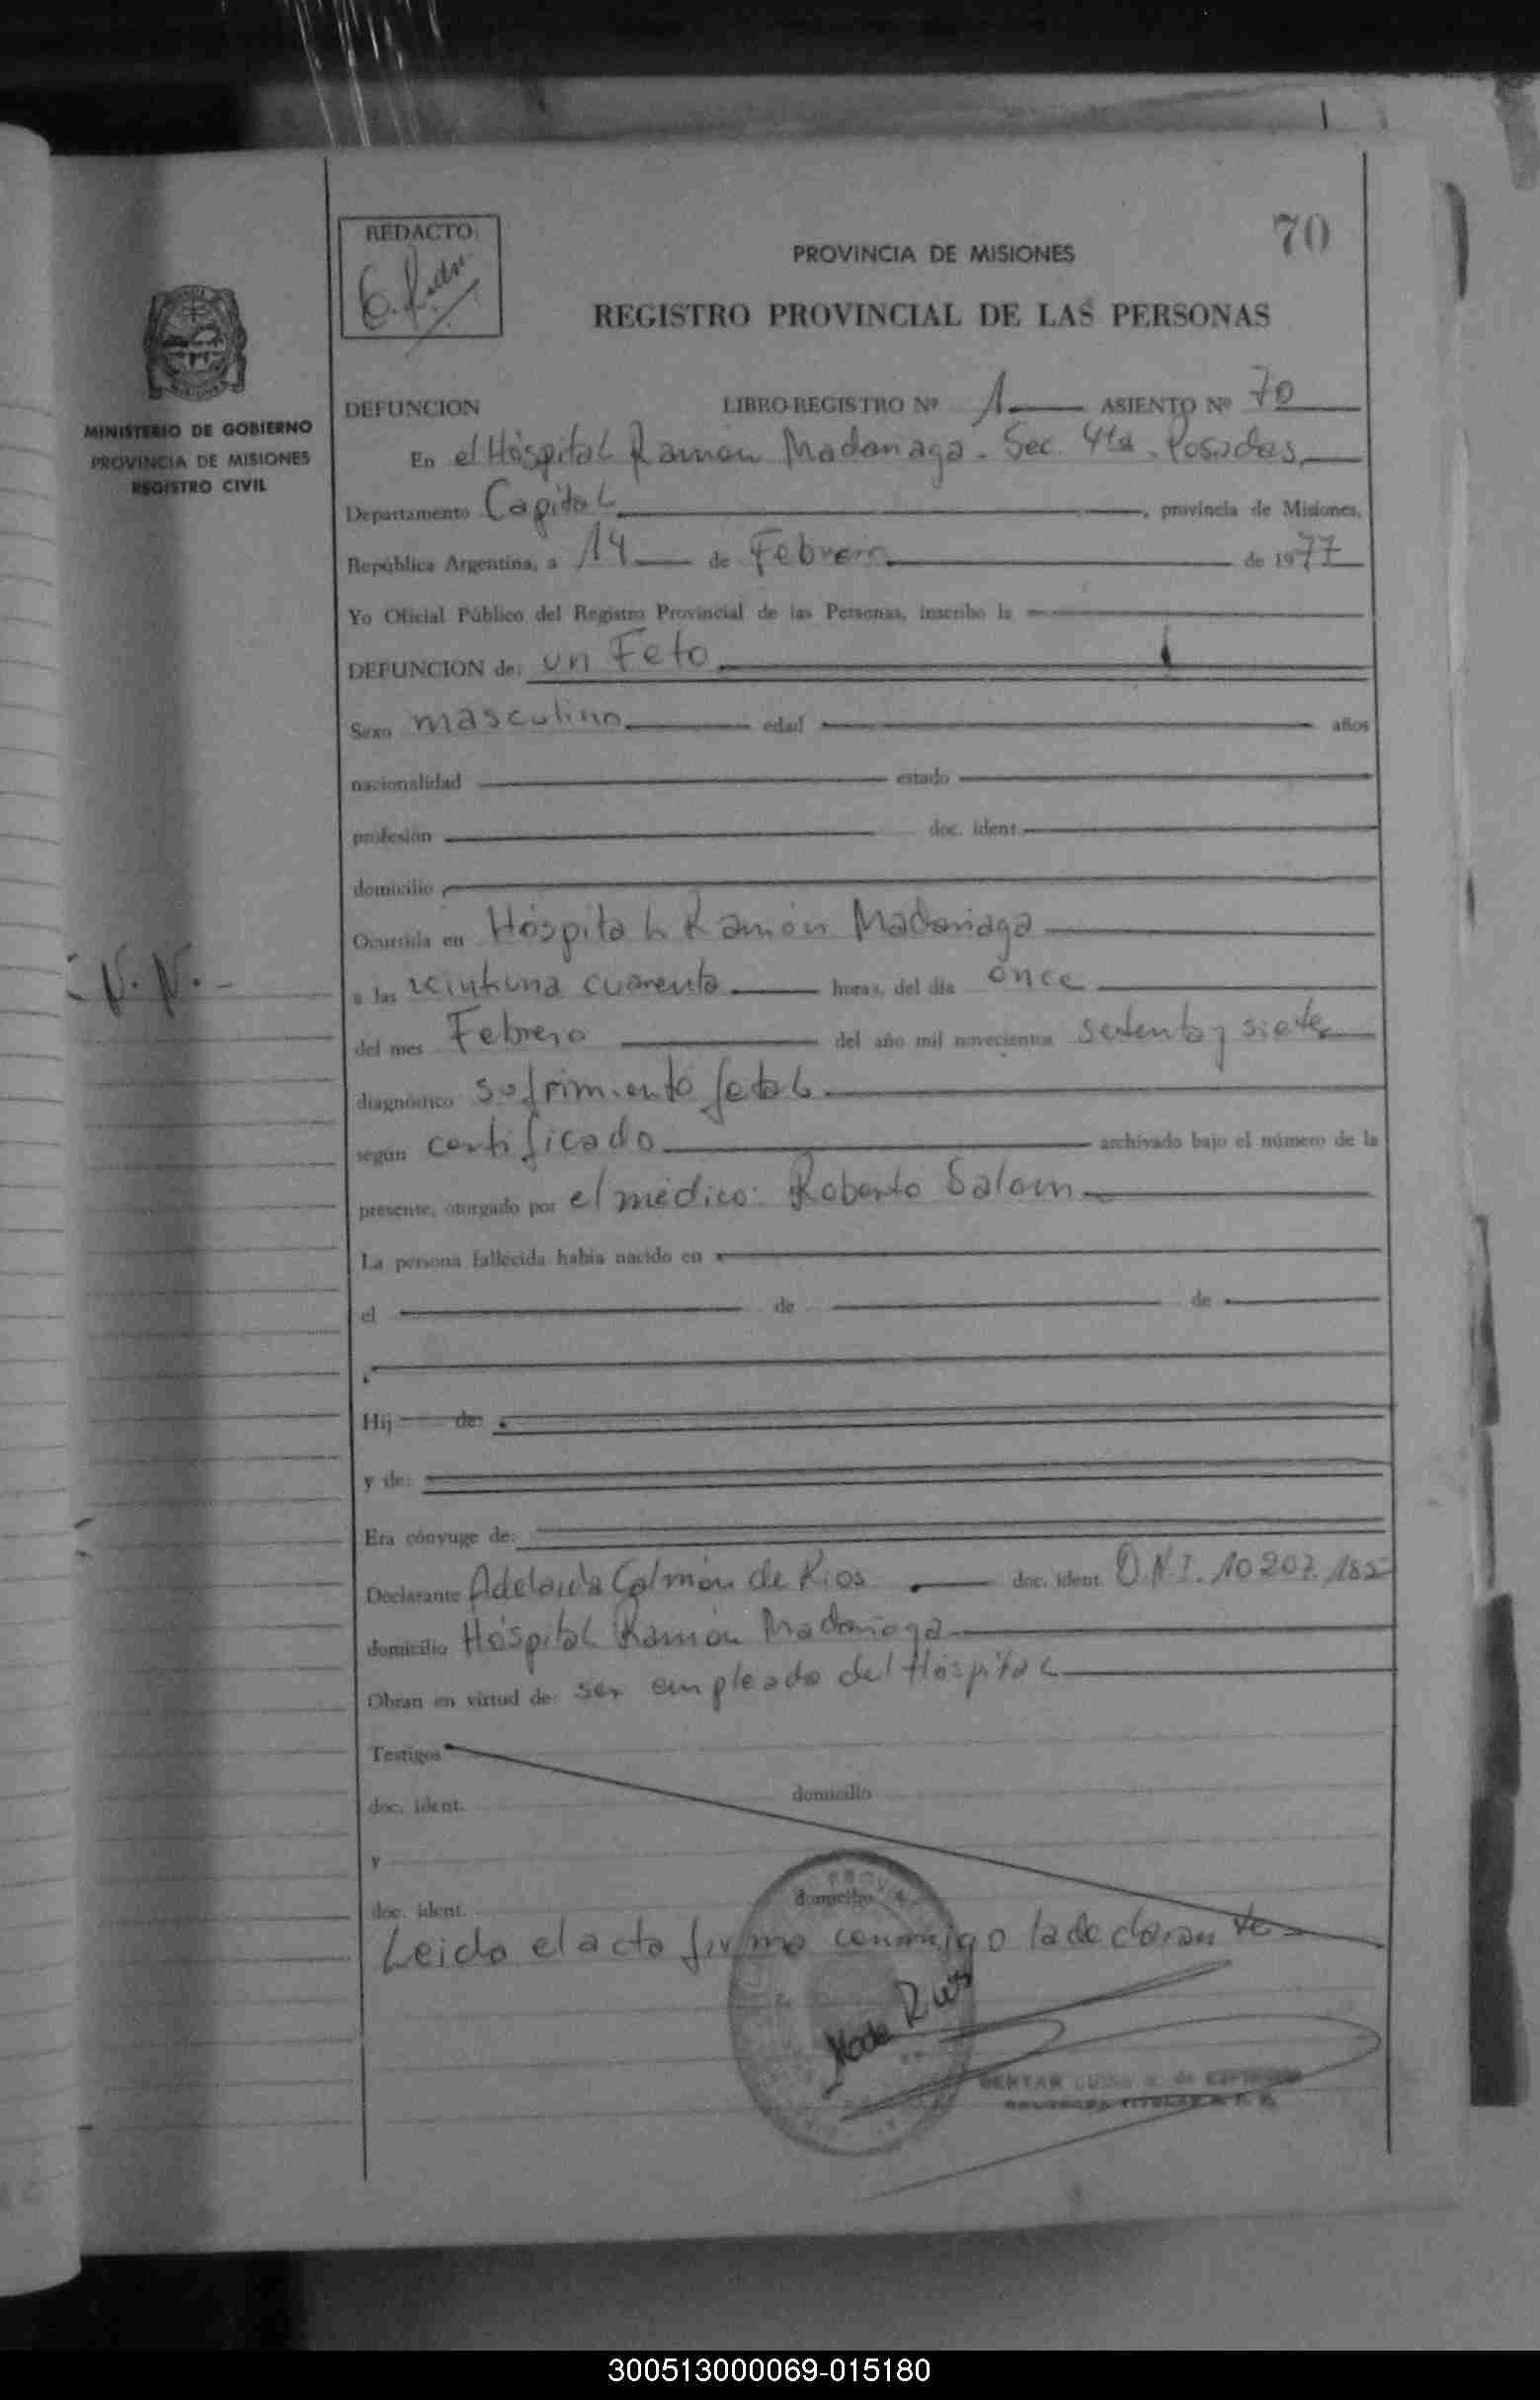 70
REDACTO:
PROVINCIA DE MISIONES
REGISTRO PROVINCIAL DE LAS PERSONAS
MINISTERIO DE GOBIERNO
PROVINCIA DE MISIONES
REGISTRO CIVIL
DEFUNCION LIBRO-REGISTRO Nº 1 ASIENTO Nº 70
En el Hóspital Ramón Madariaga. Sec. 4ta. Posadas
Departamento Capital, provincia de Misiones,
República Argentina, a 14 de Febrero de 1977
Yo Oficial Público del Registro Provincial de las Personas, inscribo la
DEFUNCION de: un Feto
Sexo masculino edad años
nacionalidad estado
profesión doc. ident.
domicilio
Ocurrida en Hóspital Ramón Madariaga
- N. N. -
a las veintiuna cuarenta horas, del día once
del mes Febrero del año mil novecientos setenta y siete
diagnóstico sufrimiento fetal
según certificado archivado bajo el número de la
presente, otorgado por el médico: Roberto Salom
La persona fallecida había nacido en
el de de
Hij de:
y de:
Era cónyuge de:
Declarante Adelaida Colmán de Rios doc. ident. D.N.I. 10.207.185
domicilio Hóspital Ramón Madariaga
Obran en virtud de: ser empleada del Hóspital
Testigos
doc. ident. domicilio
y
doc. ident. domicilio
Leida el acta firma conmigo la declarante
300513000069-015180